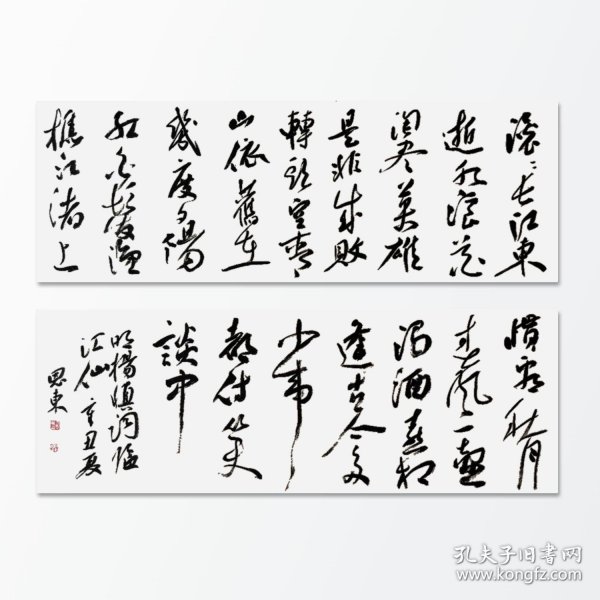 滚滚长江東
逝水浪花
淘尽英雄
是非成敗
轉头空青
山依舊在
幾度夕陽
红白髮渔
樵江渚上
惯看秋月
春风一壶
浊酒喜相
逢古今多
少事
都付笑
談中
明楊慎词临
江仙 辛丑夏
思東
孔夫子旧书网
www.kongfz.com